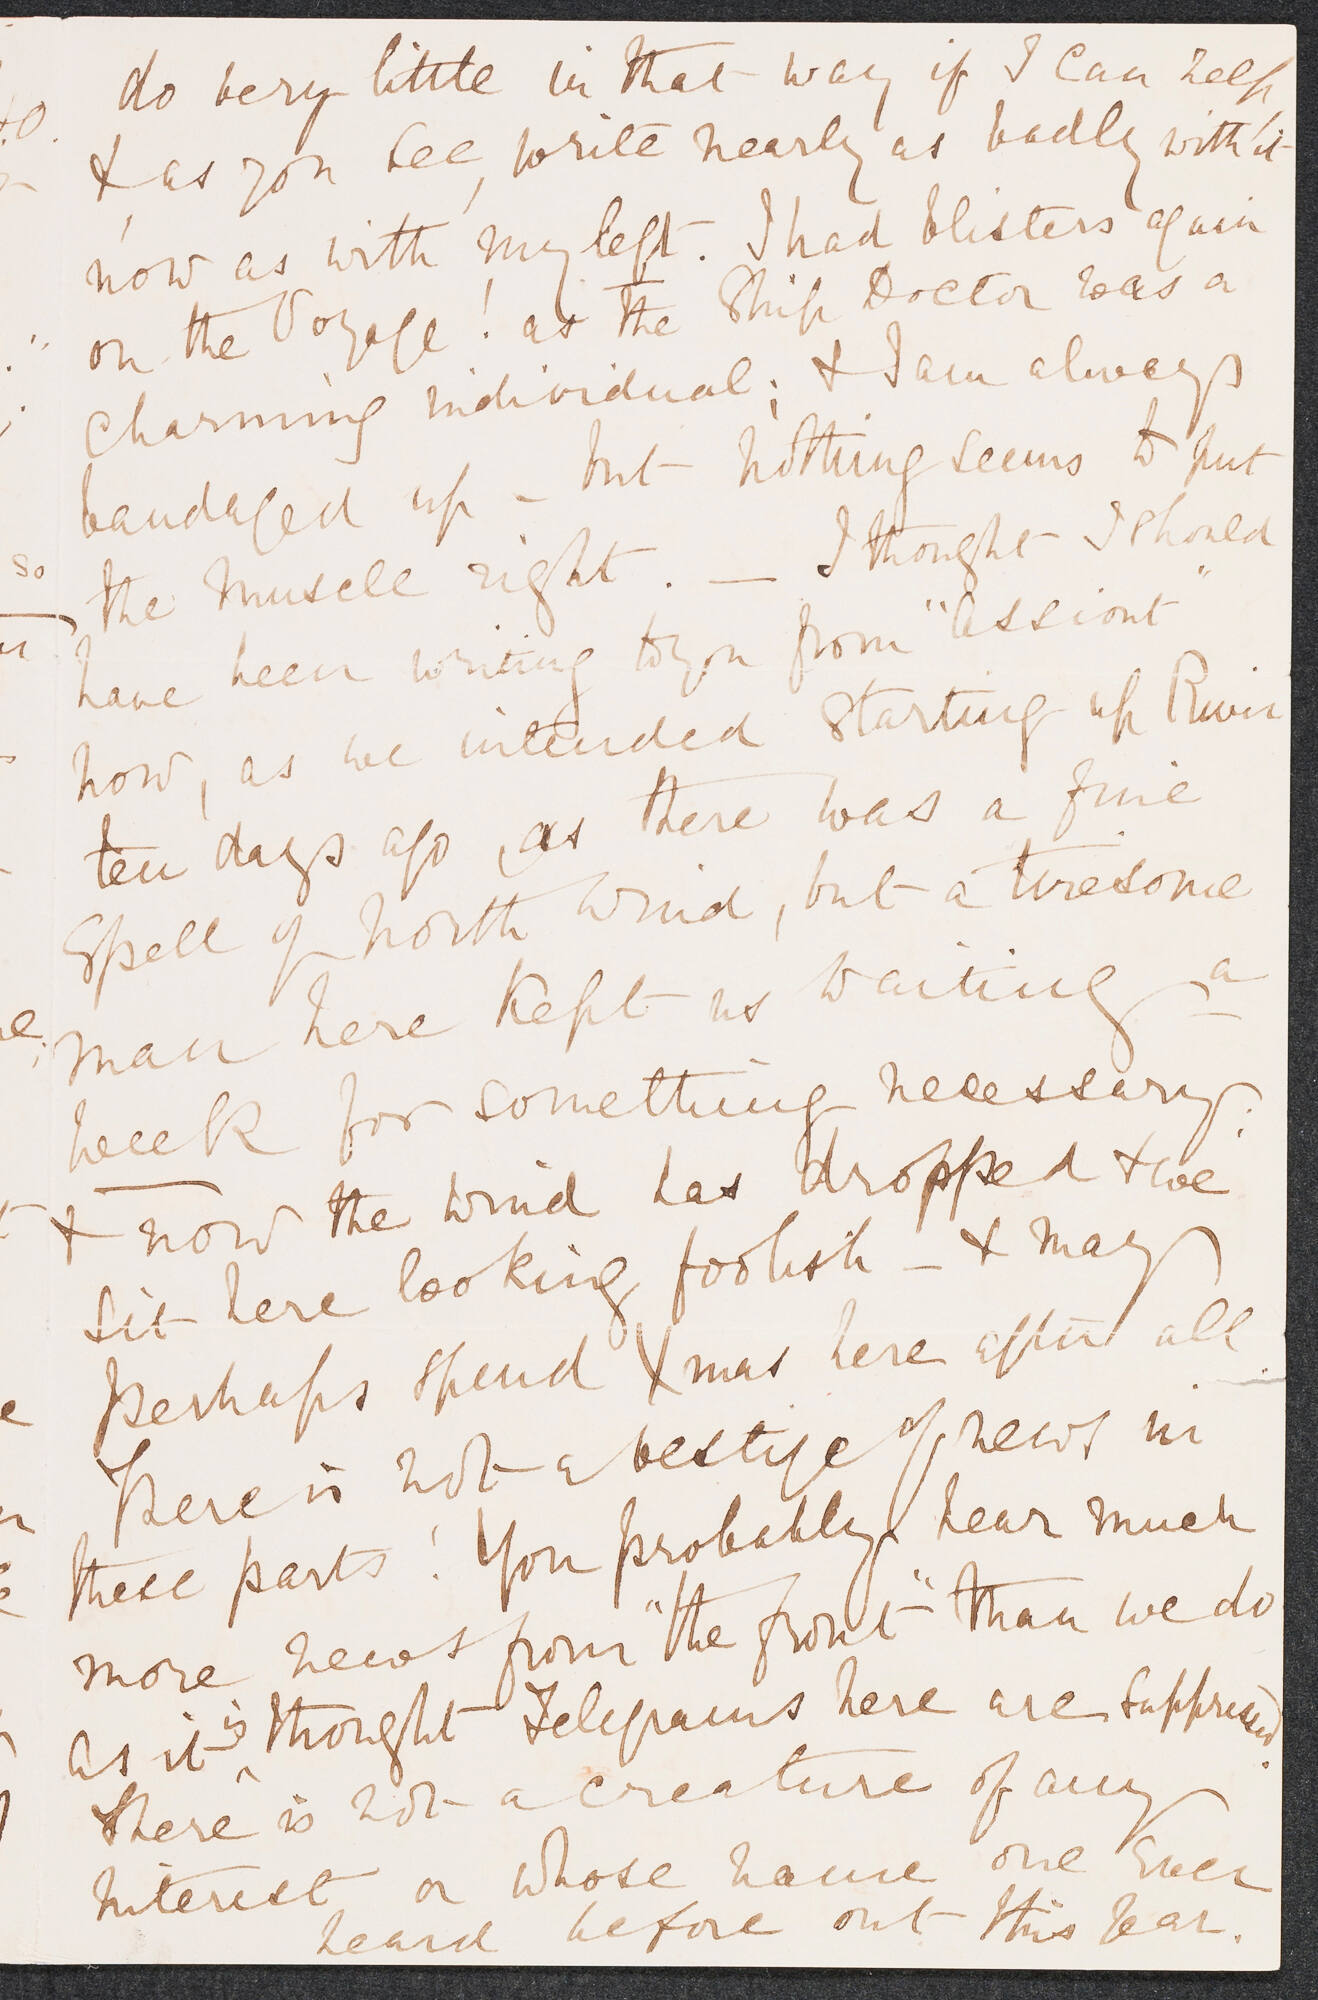 do very little in that way if I can help,
& as you see, write nearly as badly with it
now as with my left. I had blisters again
on the Voyage! as the Ship Doctor was a
charming individual; & I am always
bandaged up - but nothing seems to put
the muscle right. — I thought I should
have been writing to you from "Assiout"
now, as we intended starting up River
ten days ago, as there was a fine
Spell of North Wind, but a tiresome
man here kept us waiting a
week for something necessary.
& now the wind has dropped & we
sit here looking foolish - & may
perhaps spend Xmas here after all.
There is not a vestige of news in
these parts! You probably hear much
more news from "the front" than we do
as it is thought Telegrams here are suppressed.
There is not a creature of any
interest or whose name one ever
heard before out this year.